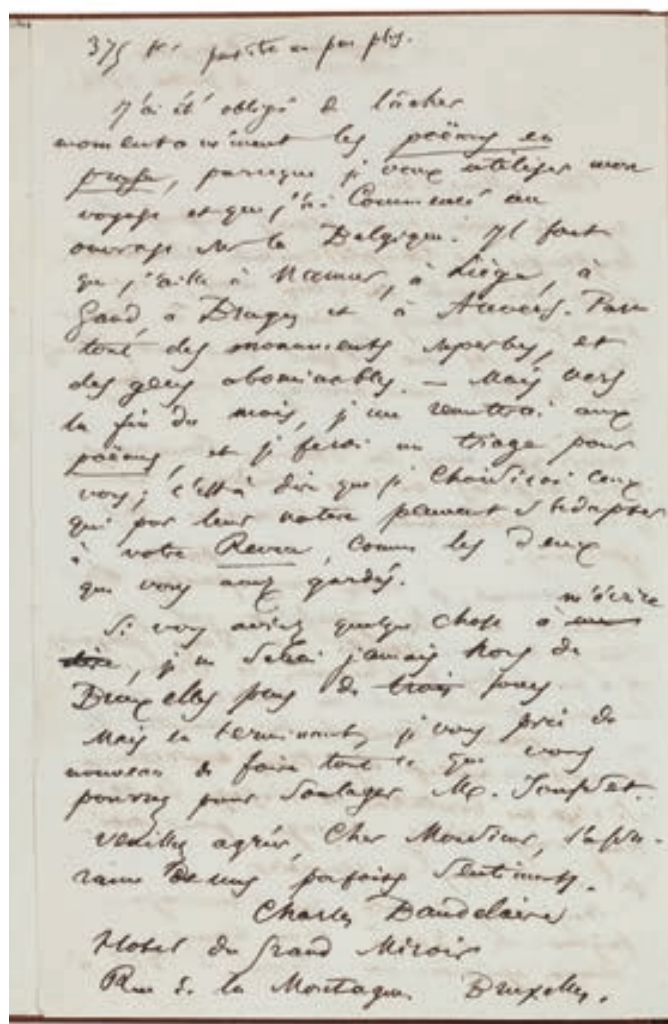 375 frs peut être un peu plus.
J'ai été obligé de lâcher
momentanément les poëmes en
prose, parceque je veux utiliser mon
voyage et que j'ai commencé un
ouvrage sur la Belgique. Il faut
que j'aille à Namur, à Liège, à
Gand, à Bruges et à Anvers. Par
tout des monuments superbes, et
des gens abominables. — Mais vers
la fin du mois, je me remettrai aux
poëmes, et je ferai un triage pour
vous; c'est à dire que je choisirai ceux
qui par leur nature peuvent s'adapter
à votre Revue, comme les deux
que vous avez gardés.
Si vous aviez quelque chose à m'écrire
, je ne serai jamais hors de
Bruxelles plus de trois jours.
Mais en terminant, je vous prie de
nouveau de faire tout ce que vous
pourrez pour soulager M.
Veuillez agréer, Cher Monsieur, l'assu-
rance de mes parfaits sentiments.
Charles Baudelaire
Hotel du Grand Miroir
Rue de la Montagne Bruxelles.